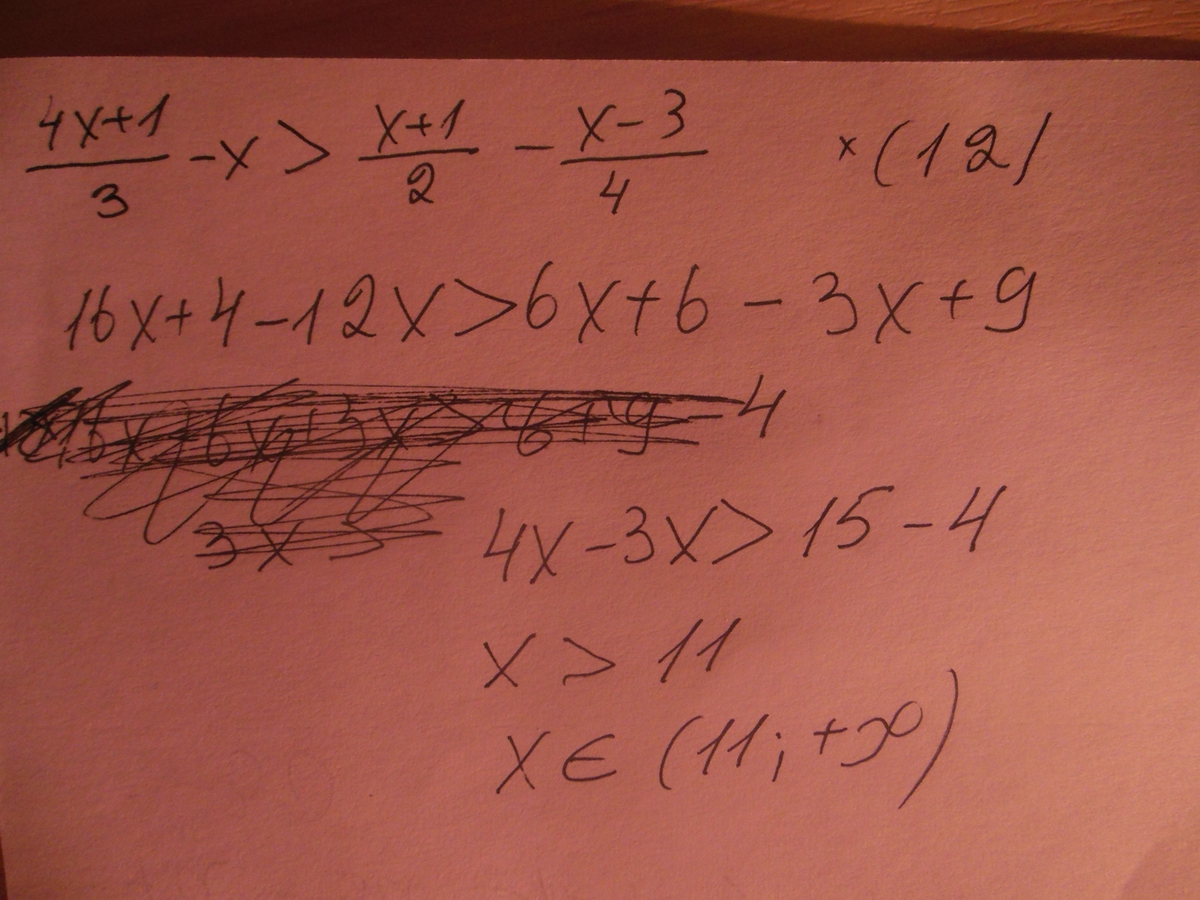 (4x+1)/3 - x > (x+1)/2 - (x-3)/4 ×(12)
16x+4-12x>6x+6-3x+9
-4
3x >
4x-3x>15-4
x > 11
x ∈ (11; +∞)